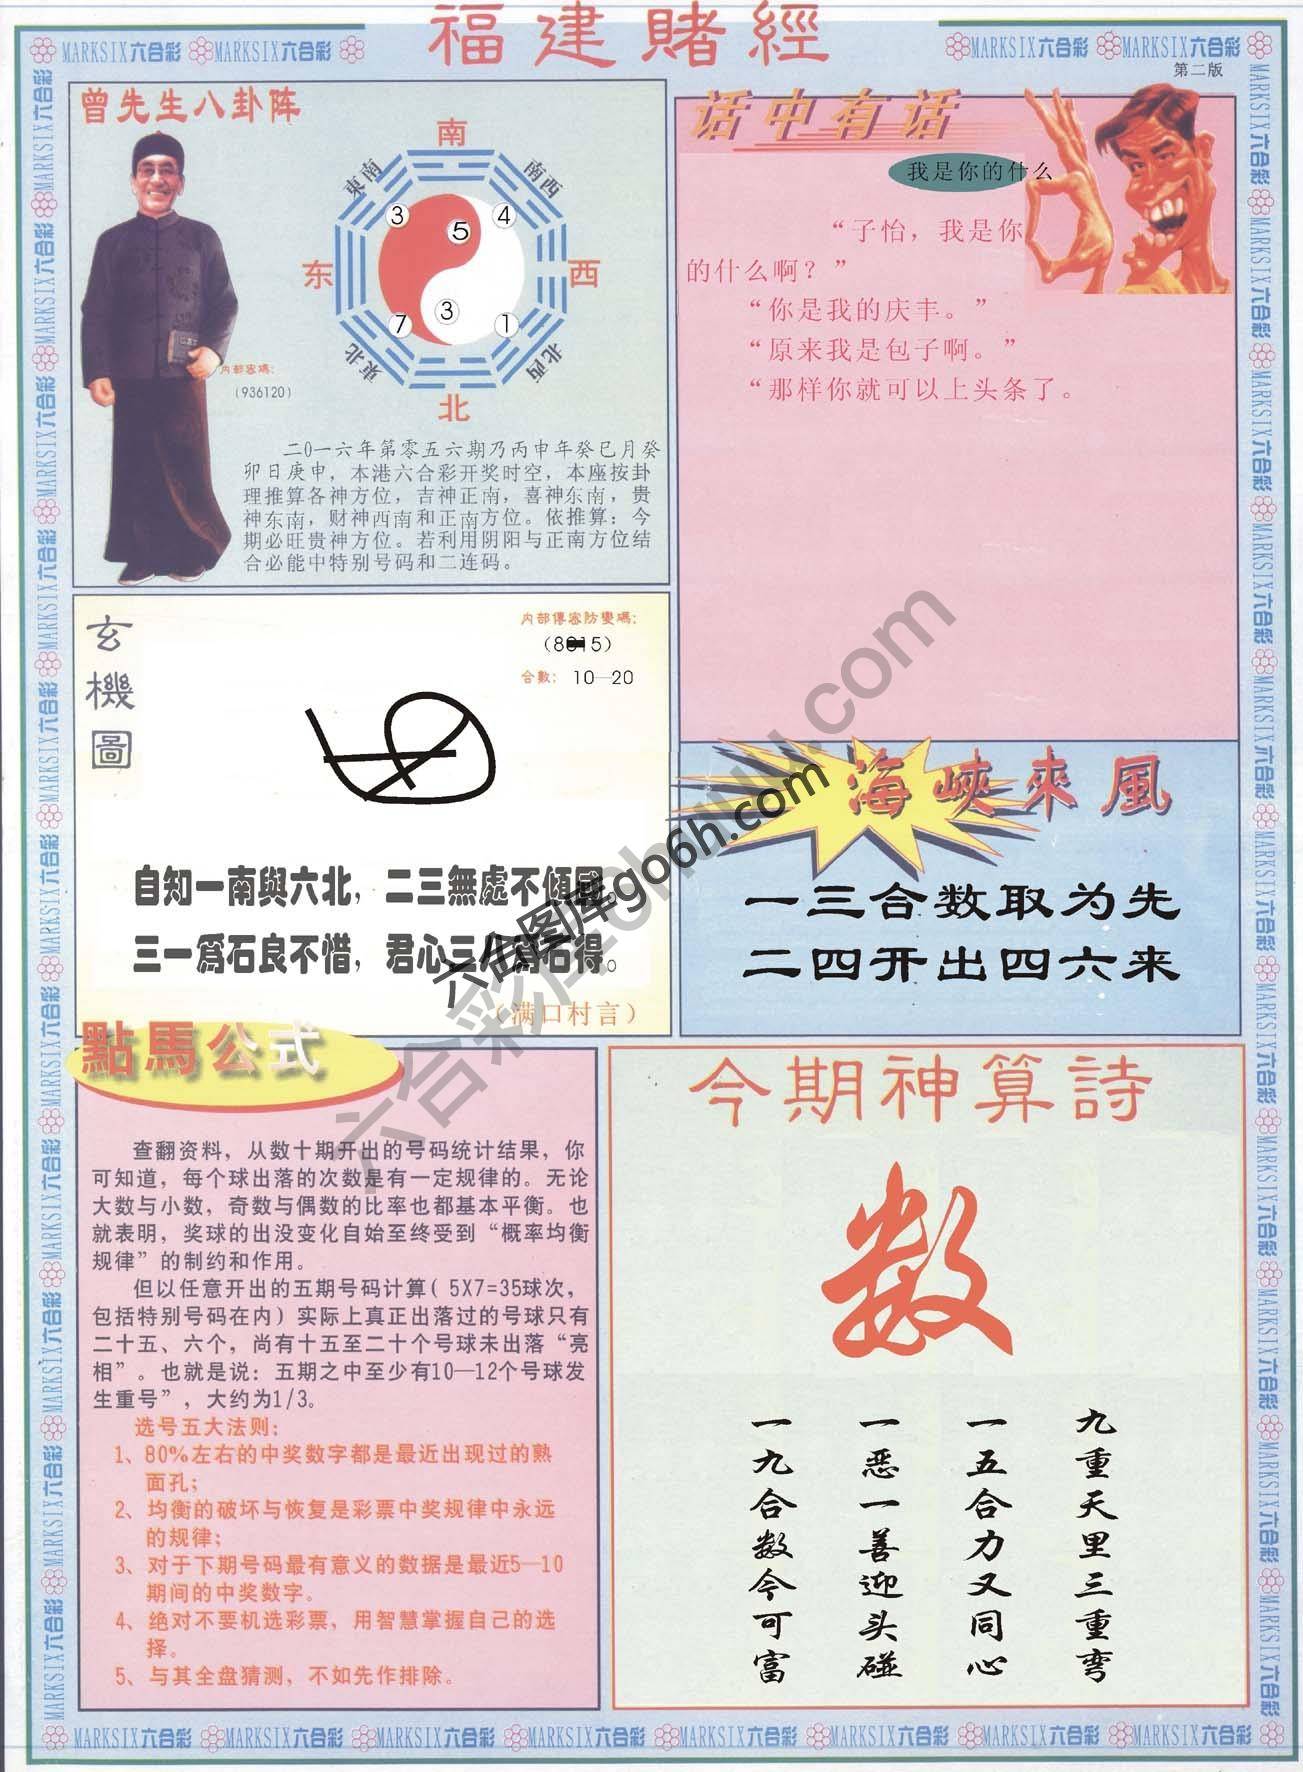 福建賭經
MARKSIX六合彩 MARKSIX六合彩
MARKSIX六合彩 MARKSIX六合彩
第二版
曾先生八卦阵
南
東南
南西
3
5
4
东
西
7
3
1
東北
北西
北
内部密碼:
(936120)
二0一六年第零五六期乃丙申年癸巳月癸
卯日庚申，本港六合彩开奖时空，本座按卦
理推算各神方位，吉神正南，喜神东南，贵
神东南，财神西南和正南方位。依推算：今
期必旺贵神方位。若利用阴阳与正南方位结
合必能中特别号码和二连码。
话中有话
我是你的什么
“子怡，我是你
的什么啊？”
“你是我的庆丰。”
“原来我是包子啊。”
“那样你就可以上头条了。
玄機圖
内部傳密防變碼:
合數: 10—20
自知一南與六北，二三無處不傾國。
三一爲石良不惜，君心三八爲石得。
（满口村言）
海峽來風
一三合数取为先
二四开出四六来
點馬公式
查翻资料，从数十期开出的号码统计结果，你
可知道，每个球出落的次数是有一定规律的。无论
大数与小数，奇数与偶数的比率也都基本平衡。也
就表明，奖球的出没变化自始至终受到“概率均衡
规律”的制约和作用。
但以任意开出的五期号码计算( 5X7=35球次，
包括特别号码在内）实际上真正出落过的号球只有
二十五、六个，尚有十五至二十个号球未出落“亮
相”。也就是说：五期之中至少有10—12个号球发
生重号”，大约为1/3。
选号五大法则:
1、80%左右的中奖数字都是最近出现过的熟
面孔;
2、均衡的破坏与恢复是彩票中奖规律中永远
的规律;
3、对于下期号码最有意义的数据是最近5—10
期间的中奖数字。
4、绝对不要机选彩票，用智慧掌握自己的选
择。
5、与其全盘猜测，不如先作排除。
今期神算詩
数
九重天里三重弯
一五合力又同心
一恶一善迎头碰
一九合数今可富
MARKSIX六合彩 MARKSIX六合彩 MARKSIX六合彩 MARKSIX六合彩 MARKSIX六合彩 MARKSIX六合彩 MARKSIX六合彩 MARKSIX六合彩
六合图库go6h.com